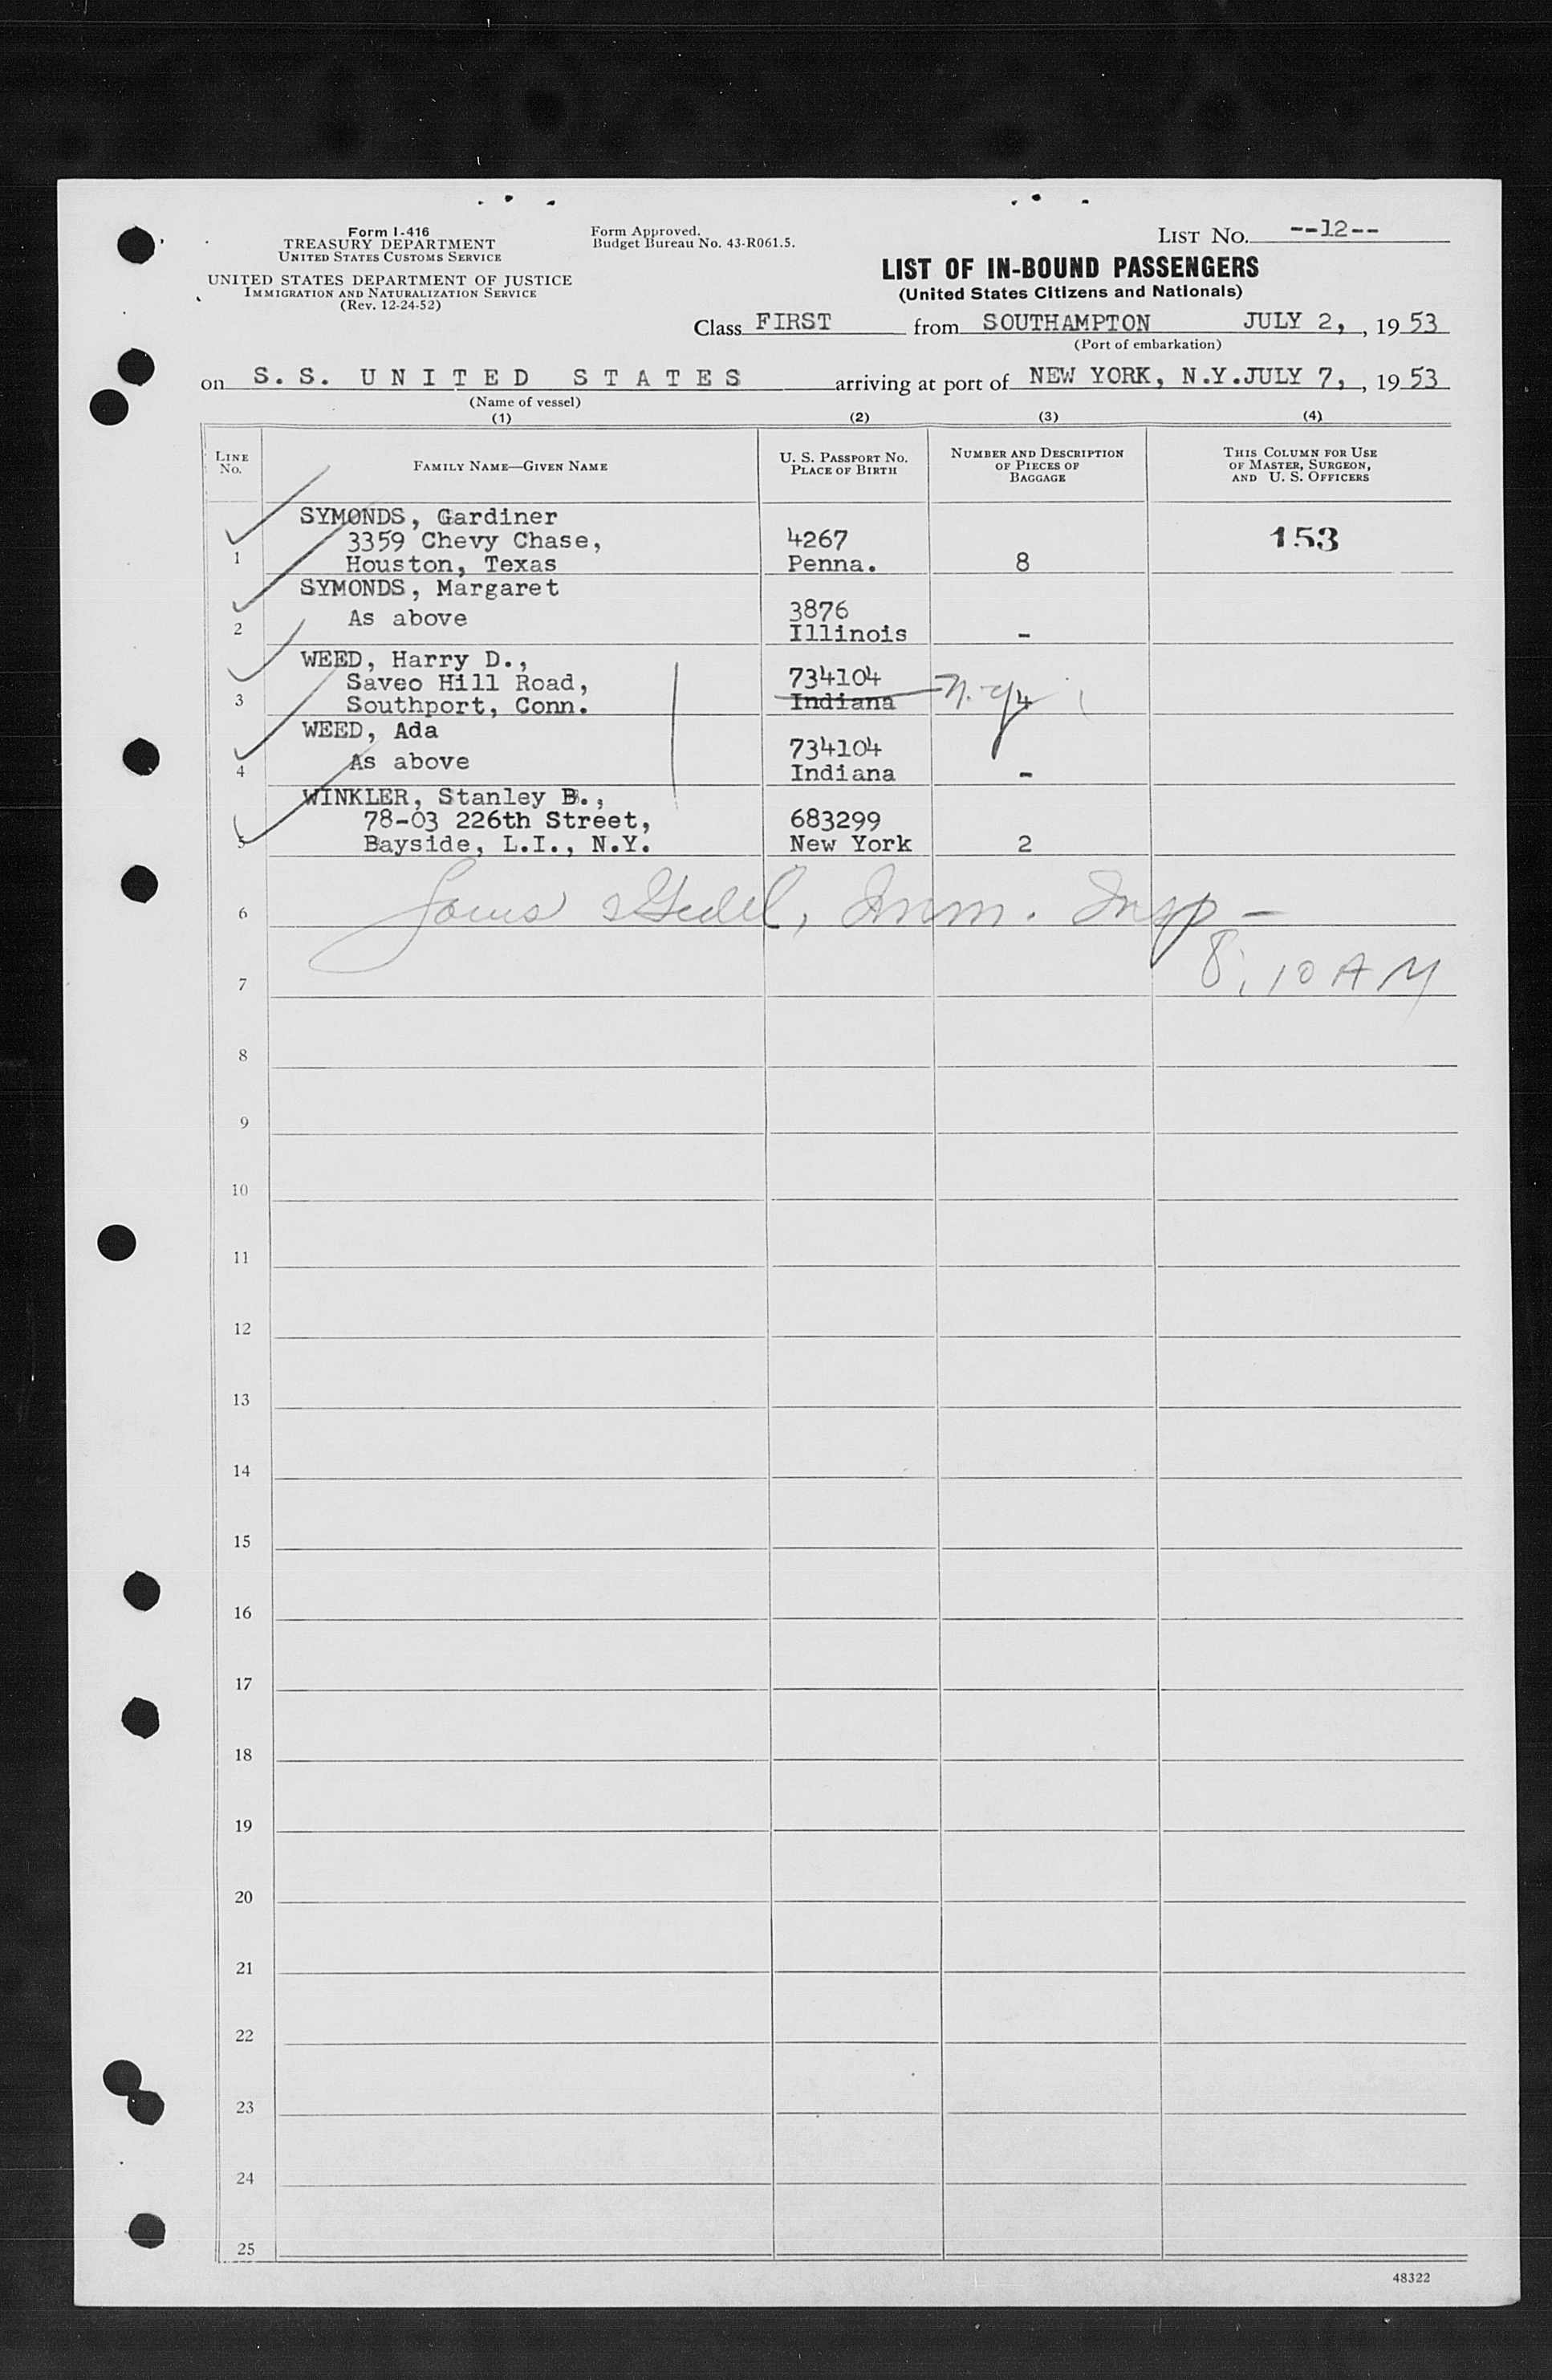 Form I-416
TREASURY DEPARTMENT
UNITED STATES CUSTOMS SERVICE
UNITED STATES DEPARTMENT OF JUSTICE
IMMIGRATION AND NATURALIZATION SERVICE
(Rev. 12-24-52)
Form Approved.
Budget Bureau No. 43-R061.5.
LIST NO. --12--
LIST OF IN-BOUND PASSENGERS
(United States Citizens and Nationals)
Class FIRST from SOUTHAMPTON JULY 2, , 19 53
(Port of embarkation)
on S. S. U N I T E D S T A T E S arriving at port of NEW YORK, N.Y. JULY 7, , 19 53
(Name of vessel)
(1) (2) (3) (4)
LINE No.
FAMILY NAME—GIVEN NAME
U. S. PASSPORT NO.
PLACE OF BIRTH
NUMBER AND DESCRIPTION
OF PIECES OF
BAGGAGE
THIS COLUMN FOR USE
OF MASTER, SURGEON,
AND U. S. OFFICERS
SYMONDS, Gardiner
3359 Chevy Chase, 4267 153
1 Houston, Texas Penna. 8
SYMONDS, Margaret
As above 3876
2 Illinois -
WEED, Harry D.,
Saveo Hill Road, 734104
3 Southport, Conn. Indiana N.Y. 4
WEED, Ada
As above 734104
4 Indiana -
WINKLER, Stanley B.,
78-03 226th Street, 683299
5 Bayside, L.I., N.Y. New York 2
6 Imm. Insp -
7 8:10 AM
8
9
10
11
12
13
14
15
16
17
18
19
20
21
22
23
24
25
48322